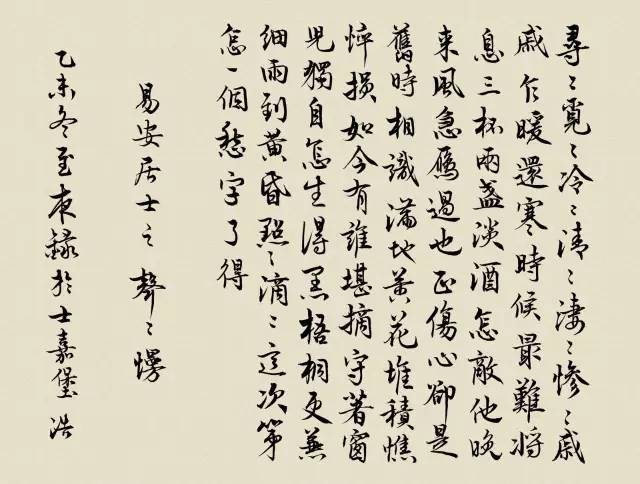 尋〻覓〻冷〻清〻淒〻慘〻戚
戚乍暖還寒時候最難將
息三杯兩盞淡酒怎敵他晚
來風急鴈過也正傷心卻是
舊時相識滿地黃花堆積憔
悴損如今有誰堪摘守著窗
兒獨自怎生得黑梧桐更兼
細雨到黃昏點〻滴〻這次第
怎一個愁字了得
易安居士之聲〻慢
乙未冬至夜錄於士嘉堡 浩